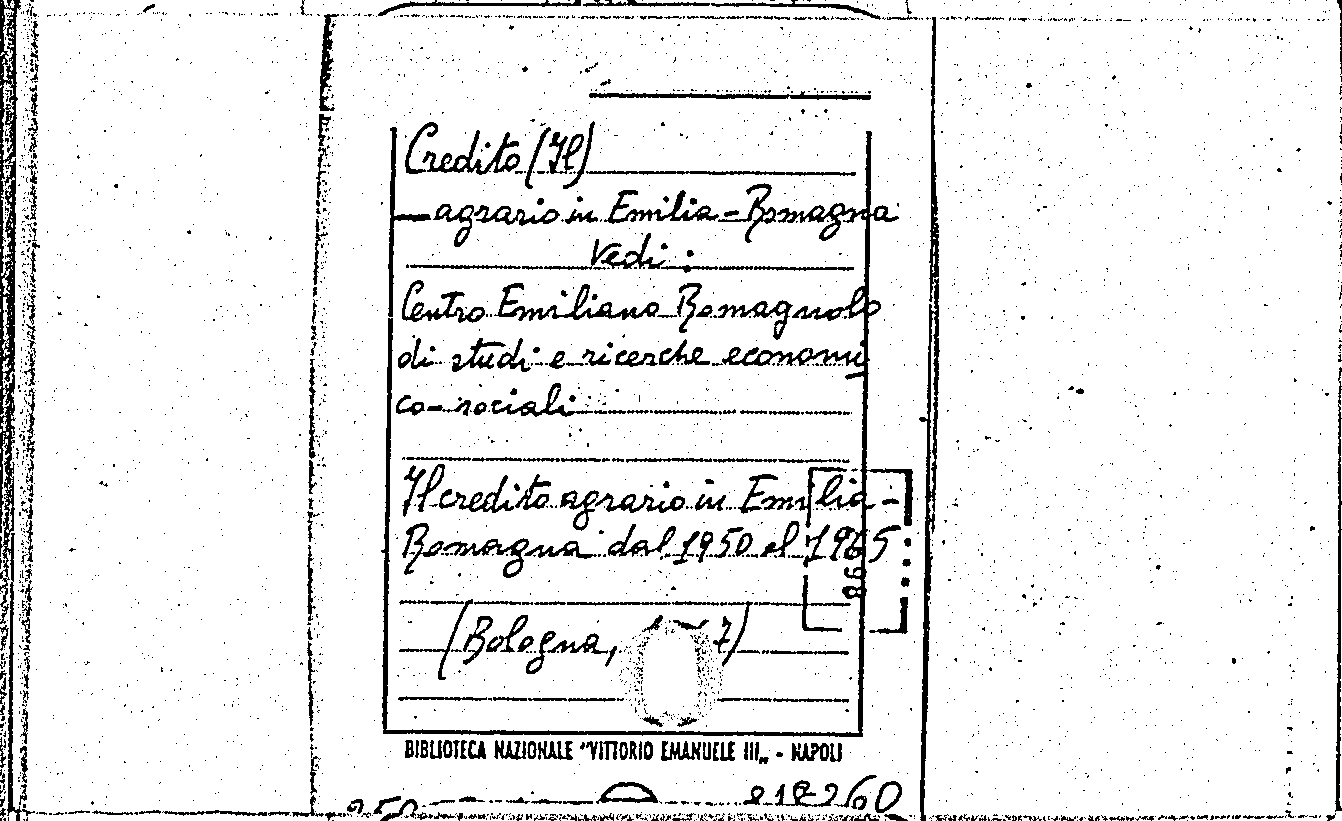 Credito (Il)
— agrario in Emilia-Romagna
Vedi:
Centro Emiliano Romagnolo
di studi e ricerche economi
co-sociali
Il credito agrario in Emilia-
Romagna dal 1950 al 1965
(Bologna, 7)
BIBLIOTECA NAZIONALE "VITTORIO EMANUELE III" - NAPOLI